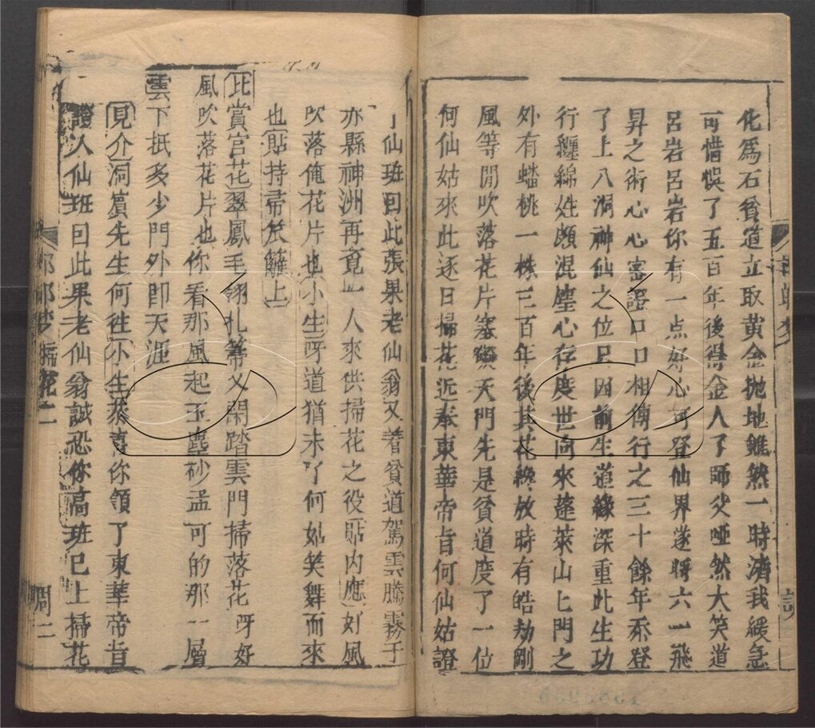 化爲石貧道立取黄金抛地雖然一時濟我緩急
可惜悞了五百年後得金人了師父啞然大笑道
呂岩呂岩你有一点好心可登仙界遂將六一飛
昇之術心心密證口口相傳行之三十餘年忝登
了上八洞神仙之位只因前生道緣深重此生功
行纏綿姓頗混塵心存度世向來蓬萊山上門之
外有蟠桃一株三百年後其花纔放時有皓劫剛
風等閒吹落花片塞礙天門先是貧道度了一位
何仙姑來此逐日掃花近奉東華帝旨何仙姑證
了仙班因此張果老仙翁又着貧道駕雲騰霧于
赤縣神洲再覓一人來供掃花之役貼内應好風
吹落俺花片也小生呀道猶未了何姑笑舞而來
也貼持帚笊籬上
比賞官花翠鳳毛翎扎箒乂閑踏雲門掃落花呀好
風吹落花片也你看那風起玉塵砂孟可的那一層
雲下抵多少門外卽天涯
見介洞賔先生何徃小生恭喜你領了東華帝旨
證入仙班因此果老仙翁誠恐你高班已上掃花
邯鄲夢
掃花二